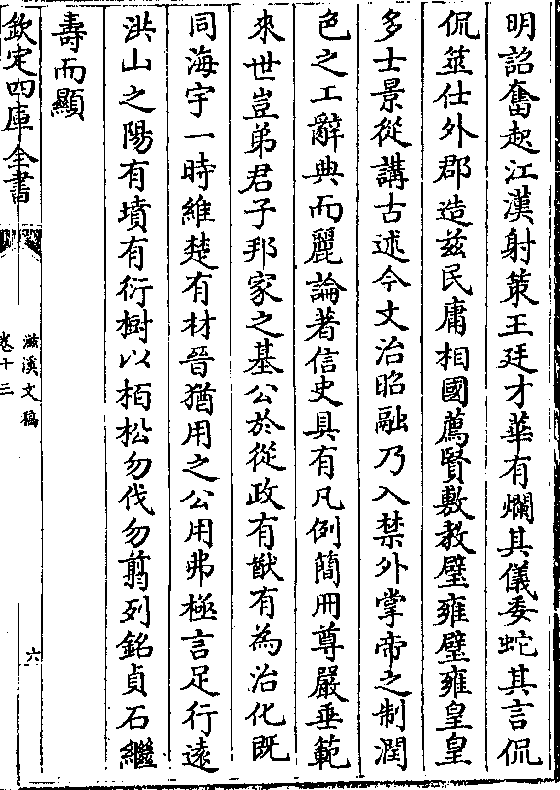 明詔奮起江漢射策王廷才華有爛其儀委蛇其言侃
侃筮仕外郡造兹民庸相國薦賢敷教璧雍璧雍皇皇
多士景從講古述今文治昭融乃入禁外掌帝之制潤
色之工辭典而麗論著信史具有凡例簡冊尊嚴垂範
來世豈弟君子邦家之基公於從政有猷有為治化既
同海宇一時維楚有材晉猶用之公用弗極言足行遠
洪山之陽有墳有衍樹以栢松勿伐勿翦列銘貞石繼
壽而顯
欽定四庫全書
滋溪文稿
卷十三
六